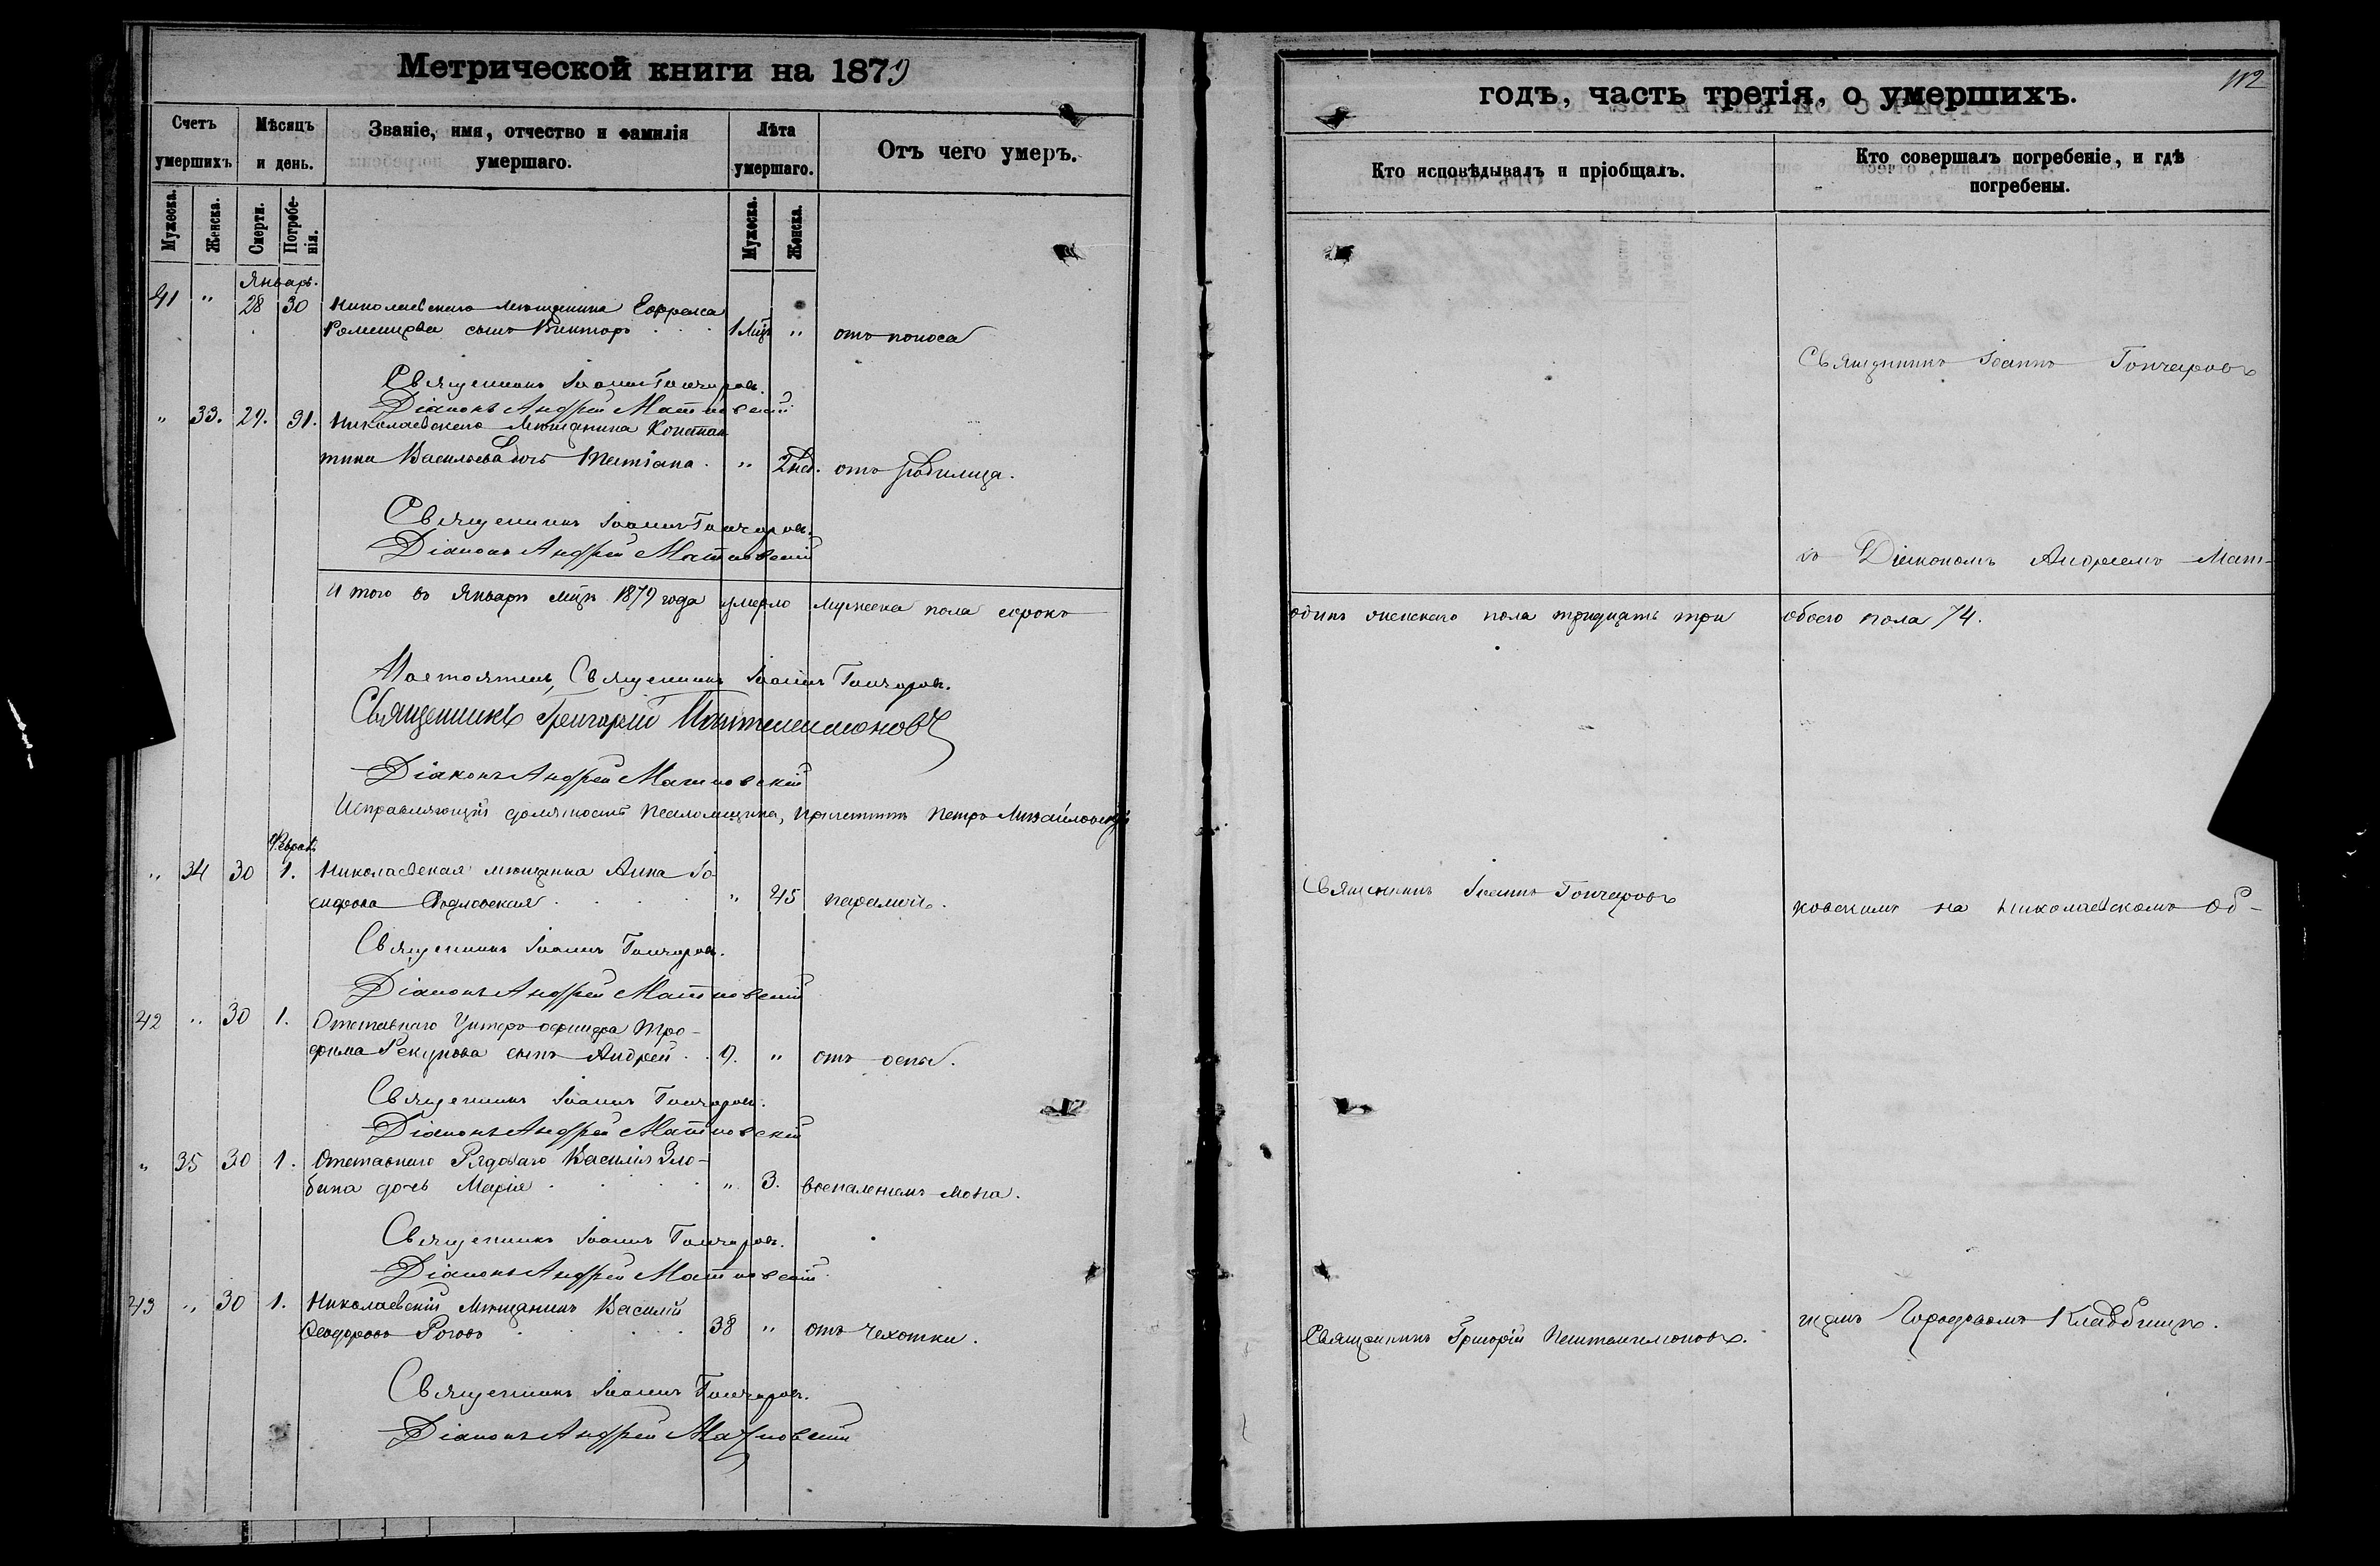 Метрической книги на 1879
Счетъ умершихъ
Мѣсяцъ и день.
Званіе, имя, отчество и фамилія умершаго.
Лѣта умершаго.
Отъ чего умеръ.
Мужеска.
Женска.
Смерти.
Погребенія.
Мужеска.
Женска.
Январь.
41 " 28 30 Николаевскаго мѣщанина
сынъ Викторъ 1 мѣц. " отъ поноса
Священникъ Іоаннъ Гончаровъ.
Діаконъ Андрей Матковскій
" 33. 29. 31. Николаевскаго мѣщанина Констан
тина Васильева дочь Татіана. " 2 нед. отъ родимца.
Священникъ Іоаннъ Гончаровъ.
Діаконъ Андрей Матковскій
Итого въ Январѣ мцѣ 1879 года умерло мужеска пола сорокъ
Настоятель, Священникъ Іоаннъ Гончаровъ.
Священникъ Григорій Пантелеимоновъ
Діаконъ Андрей Матковскій
Исправляющій должность Псаломщика, Петръ Михайловскій
Февраль
" 34 30 1. Николаевская мѣщанка Анна
" 45 параличъ.
Священникъ Іоаннъ Гончаровъ.
Діаконъ Андрей Матковскій
42 " 30 1. Отставнаго Унтеръ-офицера Тро-
фима Рекунова сынъ Андрей 9. " отъ оспы.
Священникъ Іоаннъ Гончаровъ.
Діаконъ Андрей Матковскій
" 35 30 1. Отставнаго Рядоваго Василія Зло-
бина дочь Марія " 3. воспаленіемъ мозга.
Священникъ Іоаннъ Гончаровъ.
Діаконъ Андрей Матковскій
43 " 30 1. Николаевскій Мѣщанинъ Василій
Ѳеодоровъ Роговъ 38 " отъ чехотки.
Священникъ Іоаннъ Гончаровъ.
Діаконъ Андрей Матковскій
годъ, часть третія, о умершихъ.
112
Кто исповѣдывалъ и пріобщалъ.
Кто совершалъ погребеніе, и гдѣ погребены.
Священникъ Іоаннъ Гончаровъ
съ Діакономъ Андреемъ Мат-
одинъ женскаго пола тридцать три обоего пола 74.
Священникъ Іоаннъ Гончаровъ
ковскимъ на Николаевскомъ об-
Священникъ Григорій Пантелеимоновъ.
щемъ Городскомъ Кладбищѣ.